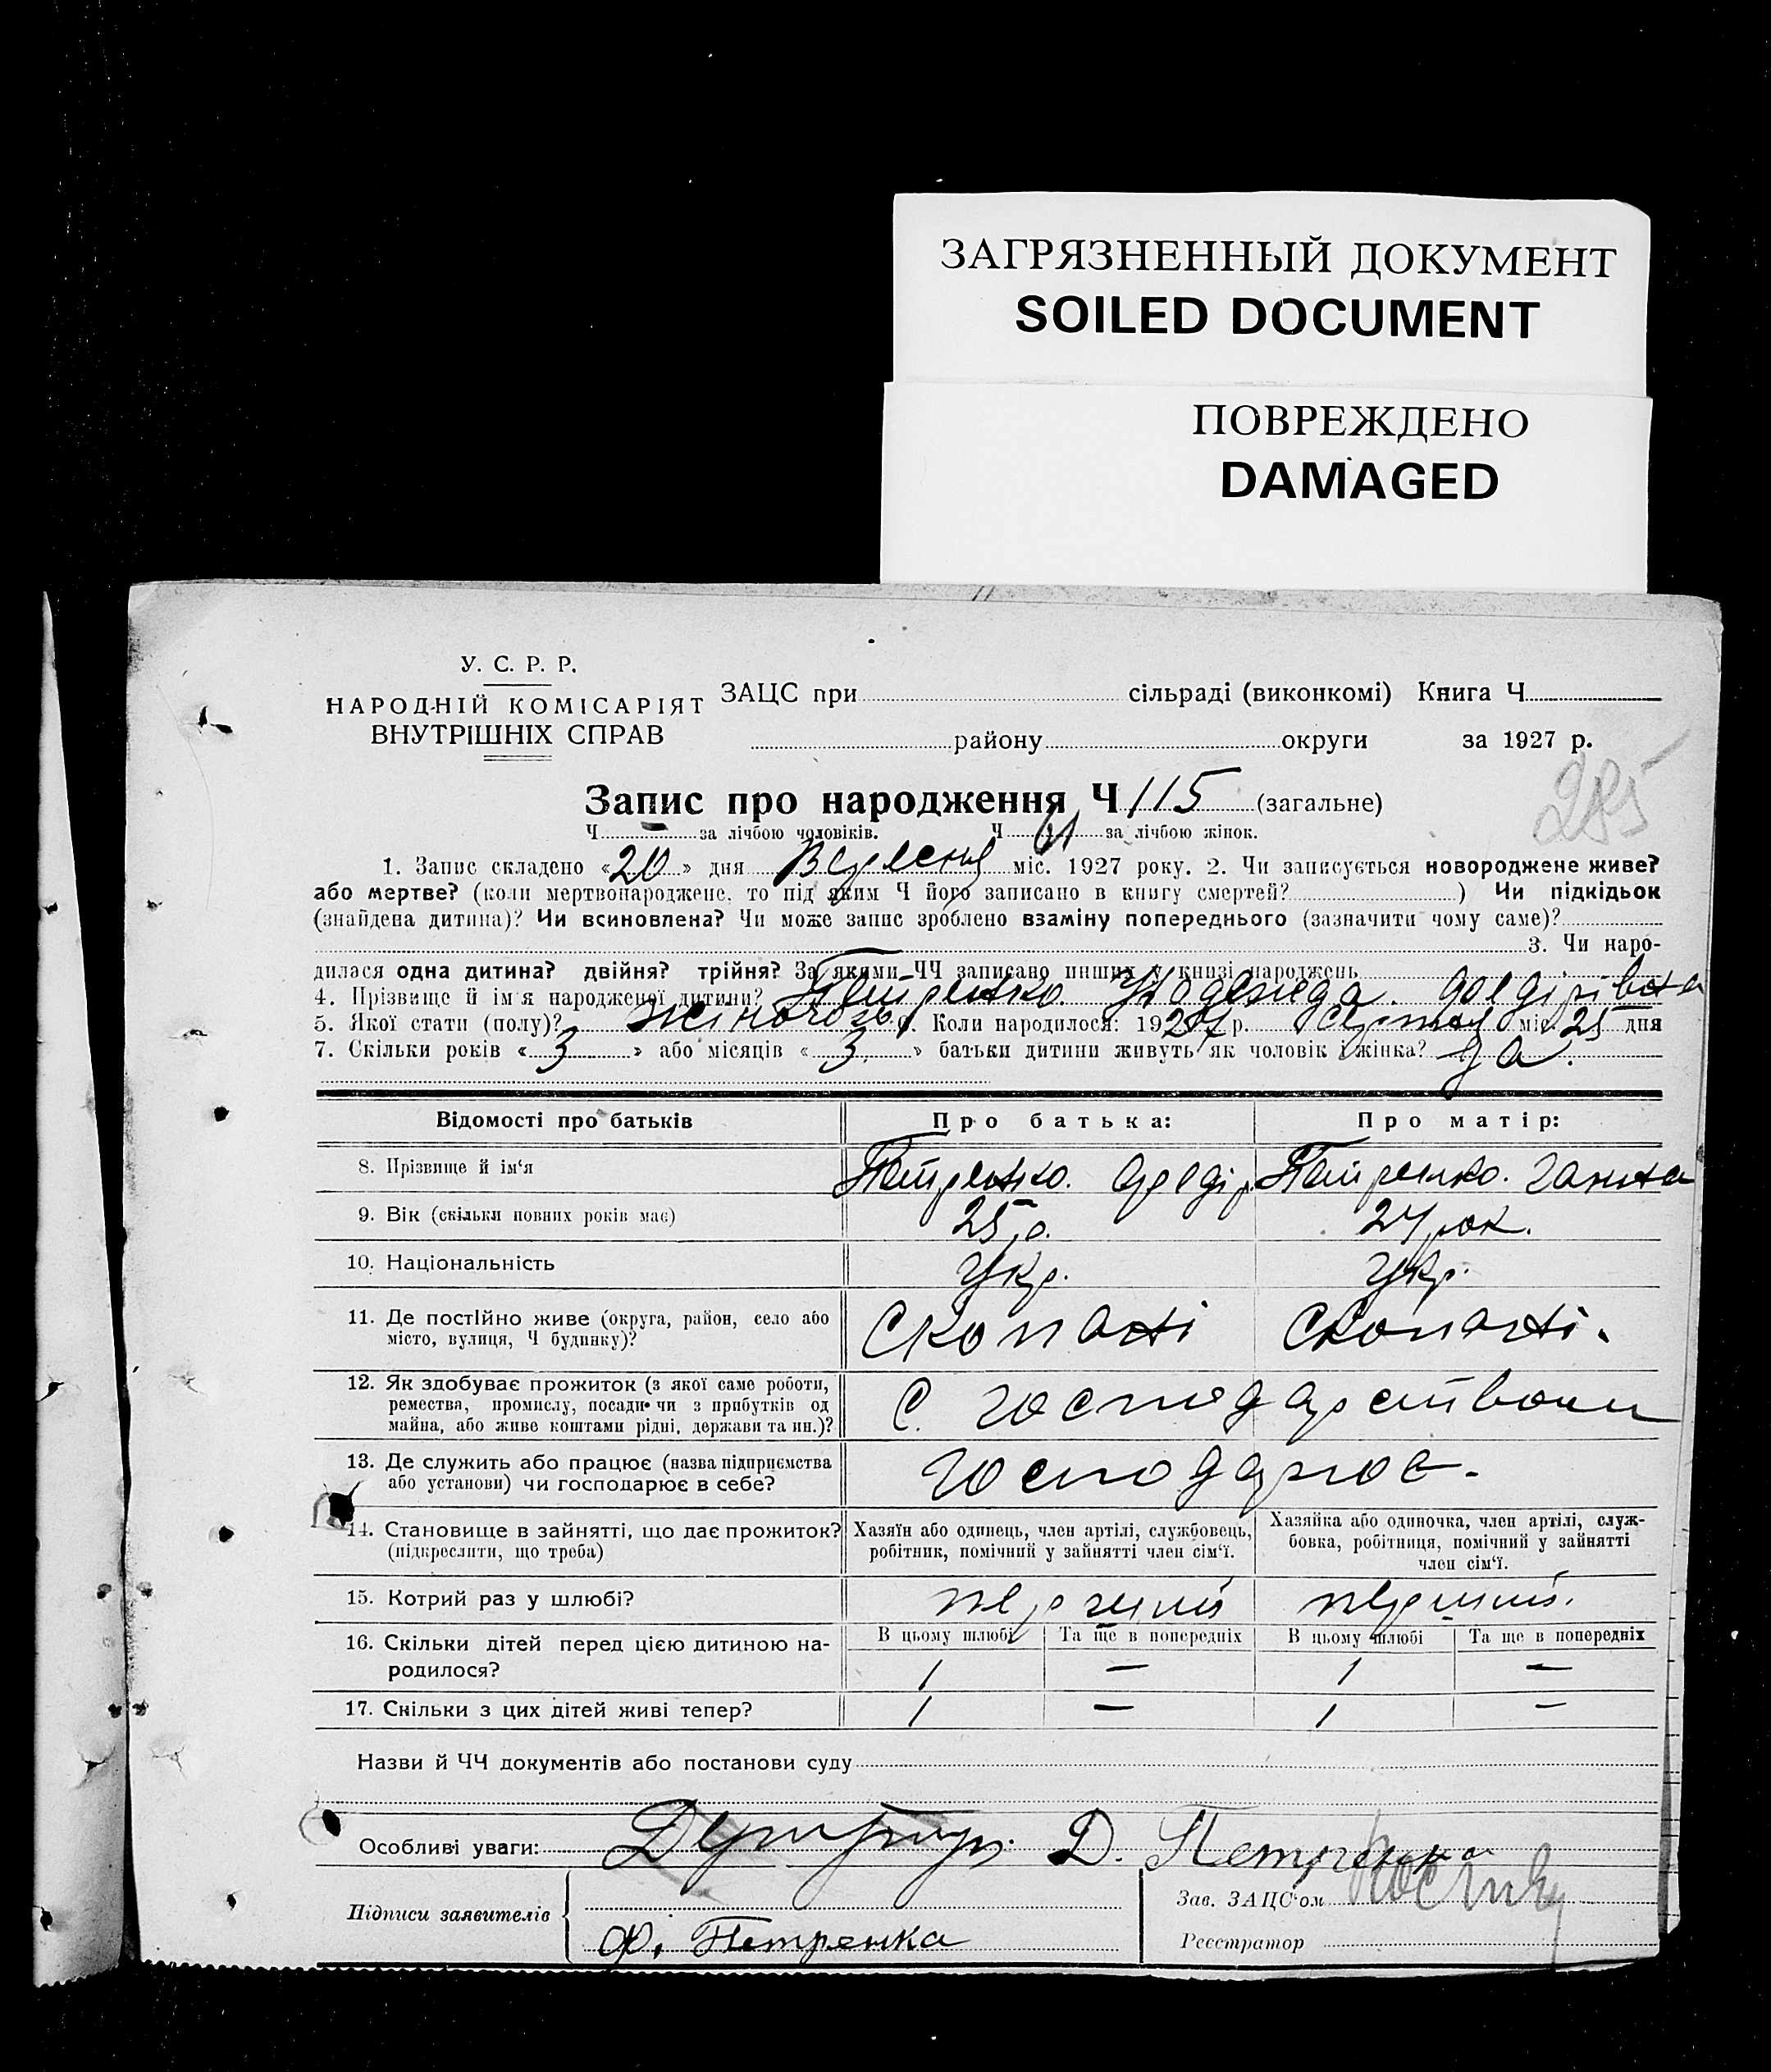 ЗАГРЯЗНЕННЫЙ ДОКУМЕНТ
SOILED DOCUMENT
ПОВРЕЖДЕНО
DAMAGED
У. С. Р. Р.
НАРОДНІЙ КОМІСАРІЯТ
ВНУТРІШНІХ СПРАВ
ЗАЦС при сільраді (виконкомі) Книга Ч
району округи за 1927 р.
285
Запис про народження Ч 115 (загальне)
Ч — за лічбою чоловіків. Ч 61 за лічбою жінок.
1. Запис складено «20» дня Вересня міс. 1927 року. 2. Чи записується новороджене живе?
або мертве? (коли мертвонароджене, то під яким Ч його записано в книгу смертей? ) Чи підкідьок
(знайдена дитина)? Чи всиновлена? Чи може запис зроблено взаміну попереднього (зазначити чому саме)?
3. Чи наро-
дилася одна дитина? двійня? трійня? За якими ЧЧ записано инших у книзі народжень
4. Прізвище й ім'я народженої дитини? Петренко Надежда
5. Якої стати (полу)? жіночого 6. Коли народилося: 1927 р. серпня міс. 25 дня
7. Скільки років «3» або місяців «3» батьки дитини живуть як чоловік і жінка? да.
Відомості про батьків Про батька: Про матір:
8. Прізвище й ім'я Петренко. Федір Петренко. Ганна
9. Вік (скільки повних років має) 25 р. 24 рок.
10. Національність Укр. Укр.
11. Де постійно живе (округа, район, село або Скопані Скопані.
місто, вулиця, Ч будинку)?
12. Як здобуває прожиток (з якої саме роботи, С. господарством
ремества, промислу, посади чи з прибутків од
майна, або живе коштами рідні, держави та ин.)?
13. Де служить або працює (назва підприємства господарює.
або установи) чи господарює в себе?
14. Становище в зайнятті, що дає прожиток? Хазяїн або одинець, член артілі, службовець, Хазяйка або одиночка, член артілі, служ-
(підкреслити, що треба) робітник, помічний у зайнятті член сім'ї. бовка, робітниця, помічний у зайнятті
член сім'ї.
15. Котрий раз у шлюбі? перший перший.
16. Скільки дітей перед цією дитиною на- В цьому шлюбі Та ще в попередніх В цьому шлюбі Та ще в попередніх
родилося? 1 — 1 —
17. Скільки з цих дітей живі тепер? 1 — 1 —
Назви й ЧЧ документів або постанови суду
Особливі уваги: Д. Петренка
Підписи заявителів Зав. ЗАЦС'ом
Ф. Петренка Реєстратор